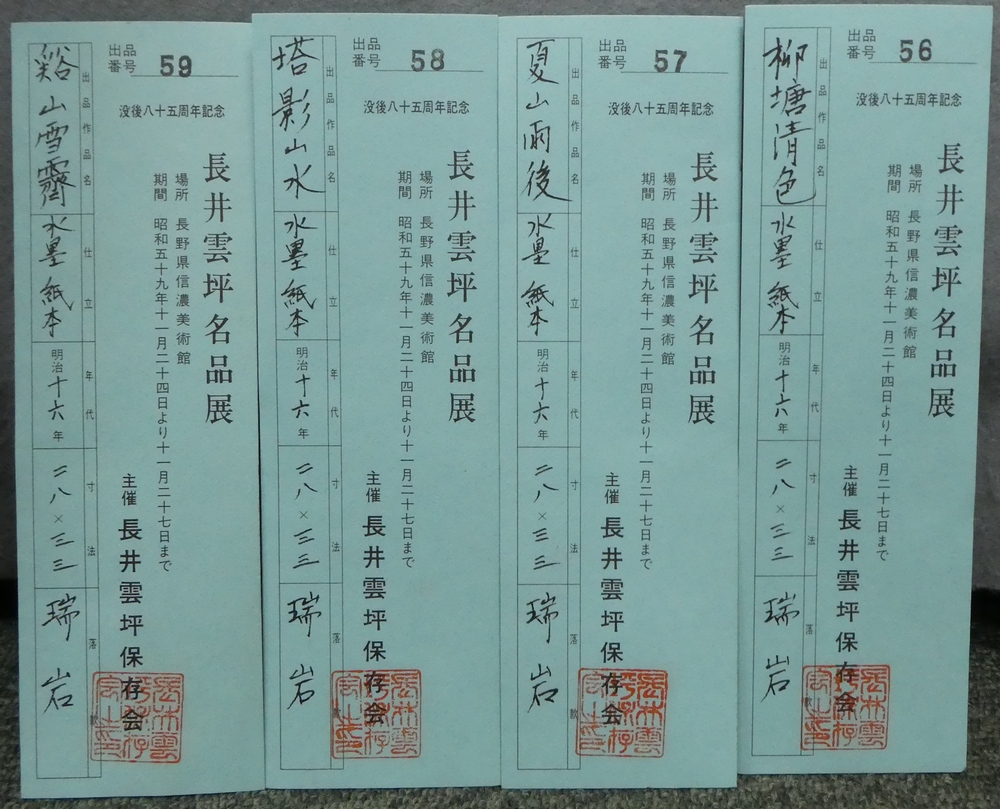 出品番号 56
没後八十五周年記念
長井雲坪名品展
場所 長野県信濃美術館
期間 昭和五十九年十一月二十四日より十一月二十七日まで
主催 長井雲坪保存会
出品作品名 柳塘清色
仕立 水墨 紙本
年代 明治十六年
寸法 二八×三三
落款 瑞岩
出品番号 57
没後八十五周年記念
長井雲坪名品展
場所 長野県信濃美術館
期間 昭和五十九年十一月二十四日より十一月二十七日まで
主催 長井雲坪保存会
出品作品名 夏山雨後
仕立 水墨 紙本
年代 明治十六年
寸法 二八×三三
落款 瑞岩
出品番号 58
没後八十五周年記念
長井雲坪名品展
場所 長野県信濃美術館
期間 昭和五十九年十一月二十四日より十一月二十七日まで
主催 長井雲坪保存会
出品作品名 塔影山水
仕立 水墨 紙本
年代 明治十六年
寸法 二八×三三
落款 瑞岩
出品番号 59
没後八十五周年記念
長井雲坪名品展
場所 長野県信濃美術館
期間 昭和五十九年十一月二十四日より十一月二十七日まで
主催 長井雲坪保存会
出品作品名 谿山雪霽
仕立 水墨 紙本
年代 明治十六年
寸法 二八×三三
落款 瑞岩